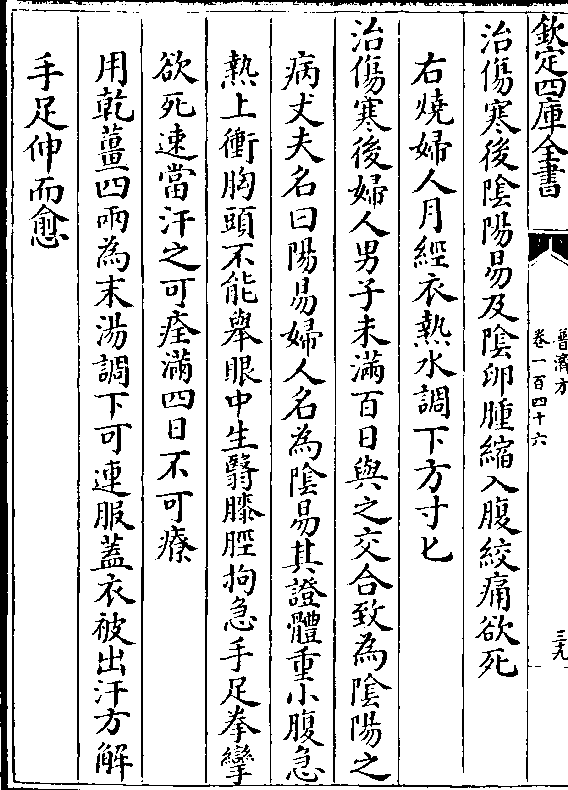 欽定四庫全書
普濟方
卷一百四十六
三九
治傷寒後陰陽易及陰卵腫縮入腹絞痛欲死
右燒婦人月經衣熱水調下方寸匕
治傷寒後婦人男子未滿百日與之交合致為陰陽之
病丈夫名曰陽易婦人名為陰易其證體重小腹急
熱上衝胸頭不能舉眼中生翳膝脛拘急手足拳攣
欲死速當汗之可痊滿四日不可療
用乾薑四兩為末湯調下可連服蓋衣被出汗方解
手足伸而愈